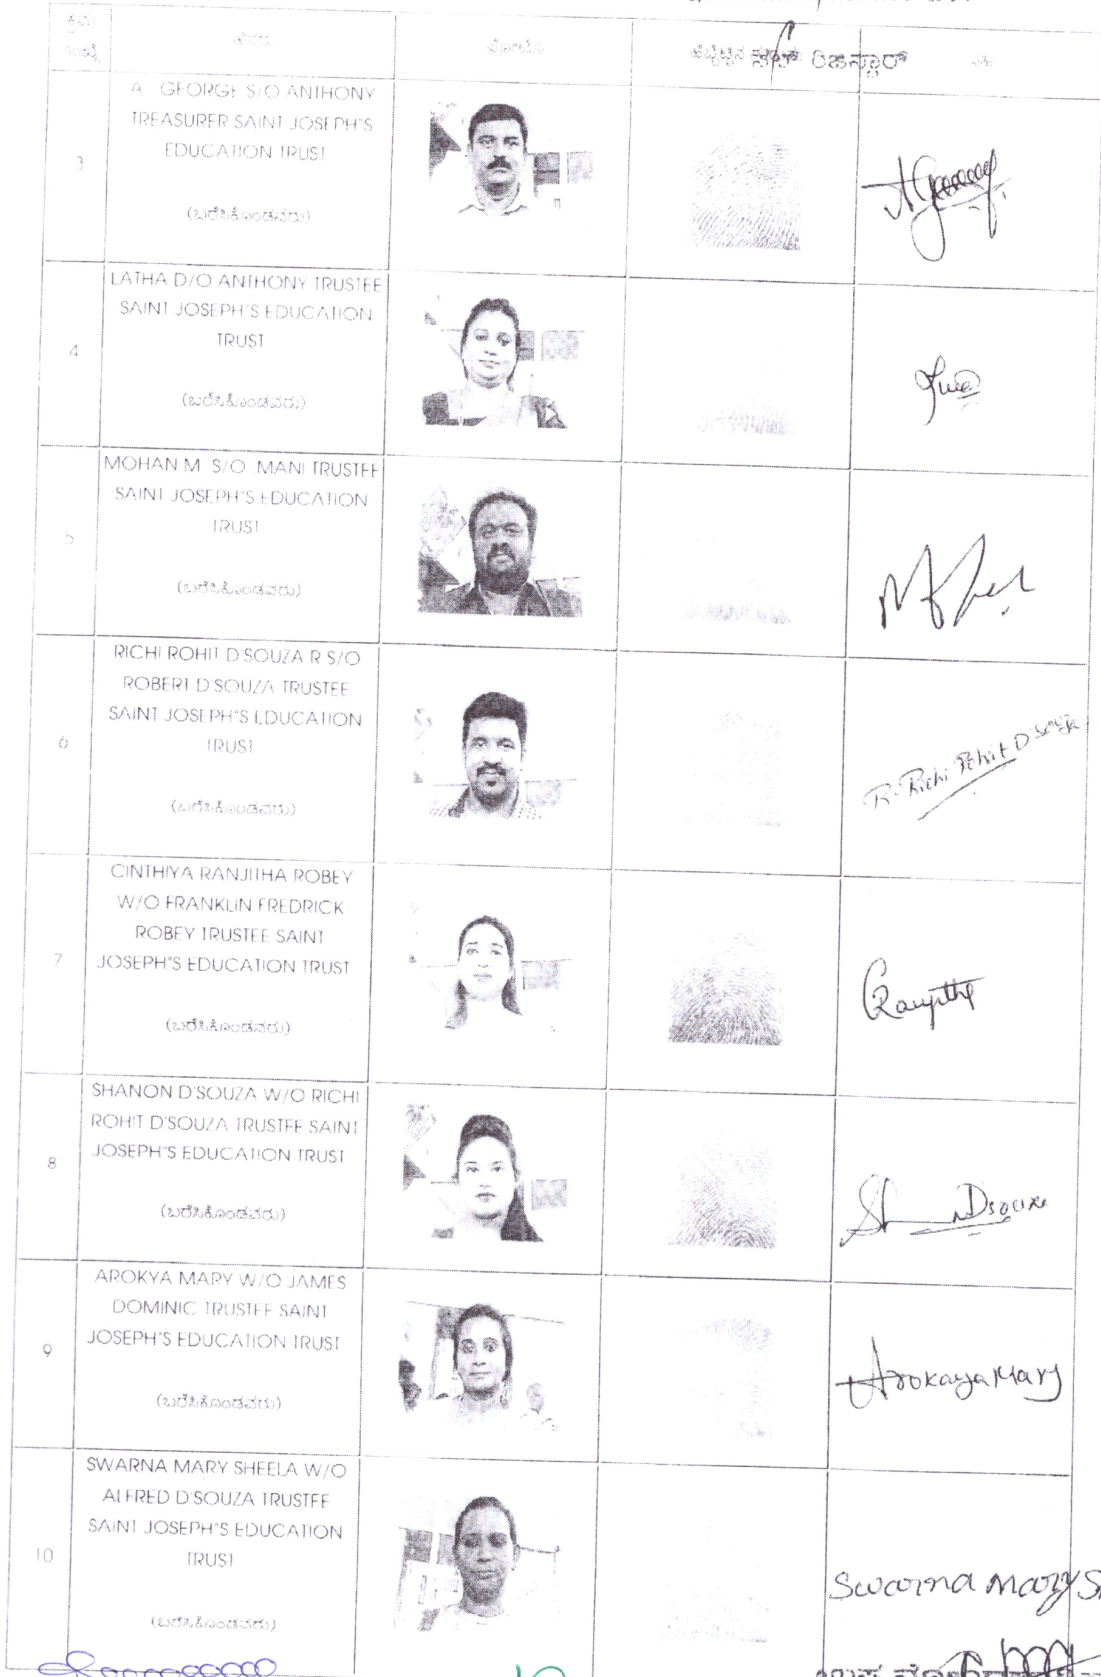 ಕ್ರಮ
ಸಂಖ್ಯೆ
ಹೆಸರು
ಫೋಟೊ
ಹೆಬ್ಬೆಟ್ಟಿನ
ಸಬ್ ರಿಜಿಸ್ಟ್ರಾರ್
ಸಹಿ
3
A GEORGE S/O ANTHONY
TREASURER SAINT JOSEPH'S
EDUCATION TRUST
(ಬರೆಸಿಕೊಂಡವರು)
4
LATHA D/O ANTHONY TRUSTEE
SAINT JOSEPH'S EDUCATION
TRUST
(ಬರೆಸಿಕೊಂಡವರು)
5
MOHAN M S/O MANI TRUSTEE
SAINT JOSEPH"S EDUCATION
TRUST
(ಬರೆಸಿಕೊಂಡವರು)
6
RICHI ROHIT D'SOUZA R S/O
ROBERT D'SOUZA TRUSTEE
SAINT JOSEPH"S EDUCATION
TRUST
(ಬರೆಸಿಕೊಂಡವರು)
R. Richi Rohit D'souza
7
CINTHIYA RANJITHA ROBEY
W/O FRANKLIN FREDRICK
ROBEY TRUSTEE SAINT
JOSEPH"S EDUCATION TRUST
(ಬರೆಸಿಕೊಂಡವರು)
8
SHANON D'SOUZA W/O RICHI
ROHIT D'SOUZA TRUSTEE SAINT
JOSEPH"S EDUCATION TRUST
(ಬರೆಸಿಕೊಂಡವರು)
9
AROKYA MARY W/O JAMES
DOMINIC TRUSTEE SAINT
JOSEPH'S EDUCATION TRUST
(ಬರೆಸಿಕೊಂಡವರು)
Arokaya Mary
10
SWARNA MARY SHEELA W/O
ALFRED D'SOUZA TRUSTEE
SAINT JOSEPH"S EDUCATION
TRUST
(ಬರೆಸಿಕೊಂಡವರು)
Swarna Mary S